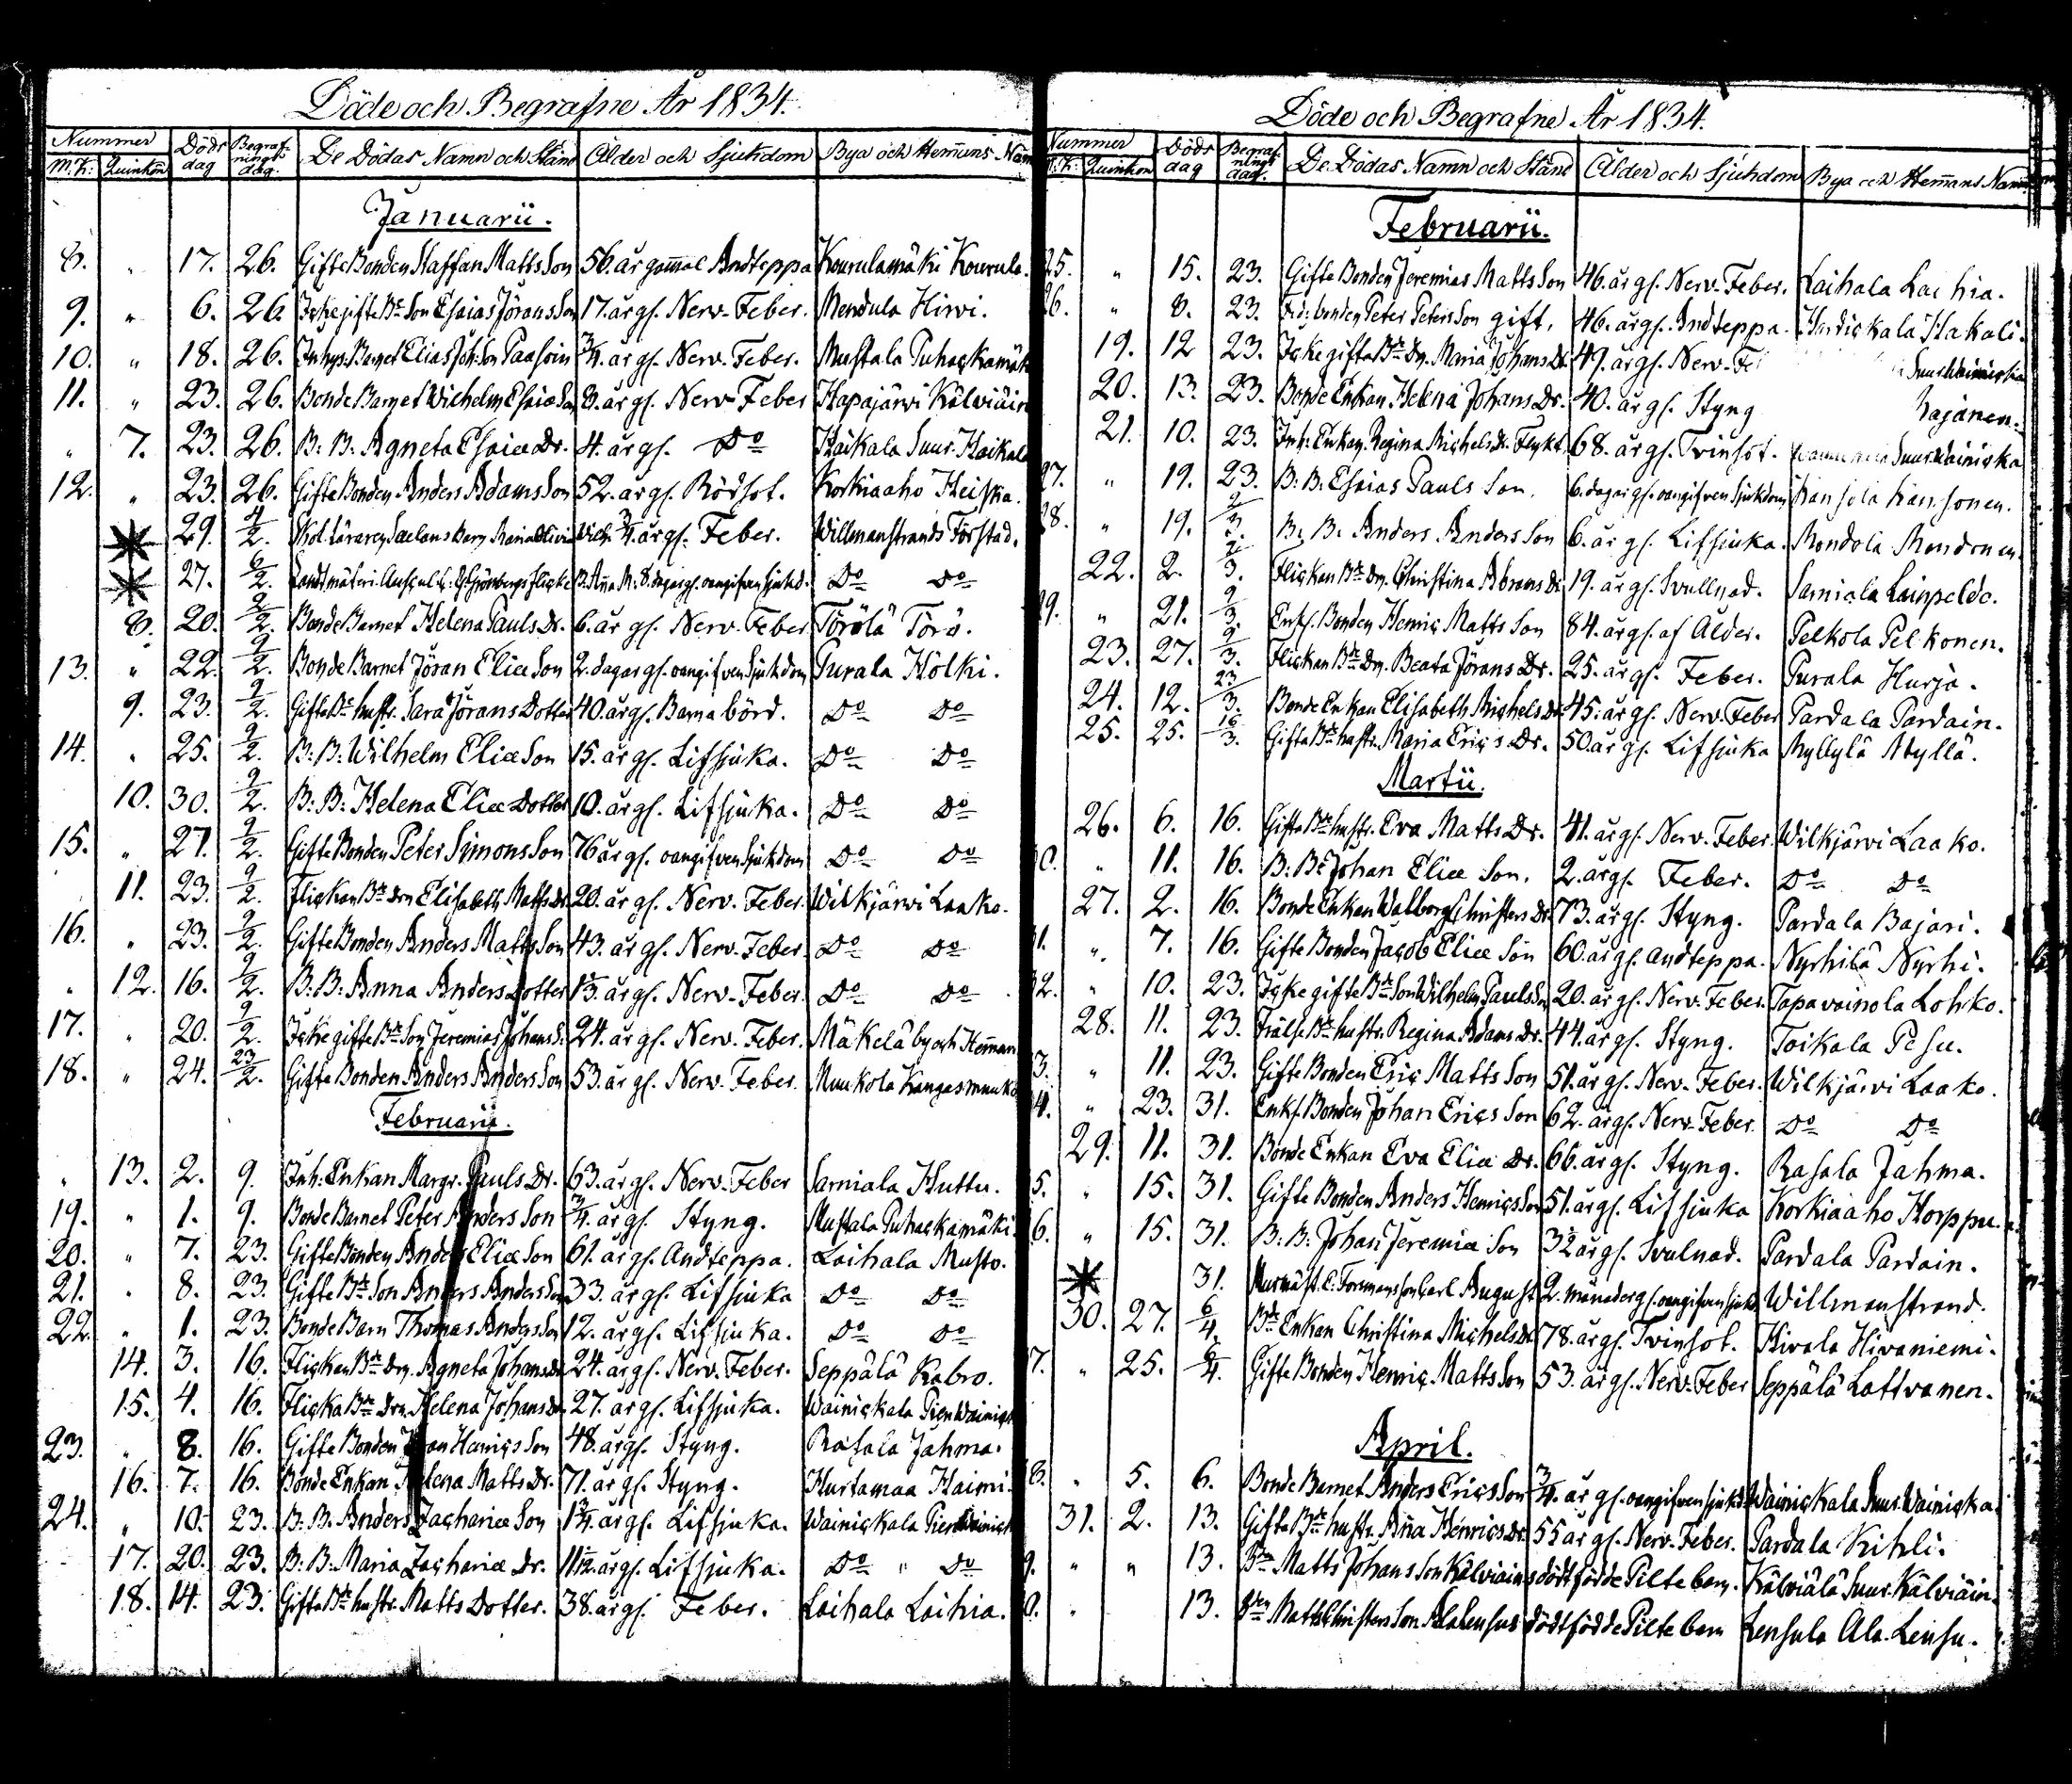 Döde och Begrafne År 1834.
Nummer Döds dag Begraf- nings dag. De Dödas Namn och Stånd Ålder och Sjukdom Bya och Hem̃ans Nam
M.K: Quinkön
Januarii.
8. " 17. 26. Gifte Bonden Staffan Matts Son 56. år gam̃al Andteppa Kourulamäki Kourula.
9. " 6. 26. Icke gifte Bde Son Esaias Jörans Son 17. år gl. Nerv-Feber. Mendula Hirvi.
10. " 18. 26. Inhys: Barnet Elias Joh: Son Paasoin 3/4. år gl. Nerv-Feber. Mustala Puhackamäk
11. " 23. 26. Bonde Barnet Wilhelm Esaiæ Son 8. år gl. Nerv Feber Hapajärvi Kälviäin
" 7. 23. 26. B: B: Agneta Esaiæ Dr. 4. år gl. Do Haikala Suur-Haikala
12. " 23. 26. Gifte Bonden Anders Adams Son 52. år gl. Rödsot. Korkiaaho Heiska.
29. 4/2. 3/4. år gl. Feber. Willmanstrands Förstad.
27. 6/2. Do Do
8. 20. 9/2. Bonde Barnet Helena Pauls Dr. 6. år gl. Nerv-Feber Törölä Törö.
13. " 22. 9/2. Bonde Barnet Jöran Eliæ Son 2. dagar gl. oangifven Sjukdom Purala Hölki.
9. 23. 9/2. Gifte Bde hustr. Sara Jörans Dotter 40. år gl. Barna börd. Do Do
14. " 25. 9/2. B: B: Wilhelm Eliæ Son 15. år gl. Lifsjuka. Do Do
10. 30. 9/2. B: B: Helena Eliæ Dotter 10. år gl. Lifsjuka. Do Do
15. " 27. 9/2. Gifte Bonden Peter Simons Son 76 år gl. oangifven Sjukdom Do Do
11. 23. 9/2. Flickan Bde Drn Elisabeth Matts Dr. 20. år gl. Nerv-Feber. Wilkjärvi Laako.
16. " 23. 9/2. Gifte Bonden Anders Matts Son 43. år gl. Nerv-Feber. Do Do
" 12. 16. 9/2. B: B: Anna Anders Dotter år gl. Nerv-Feber. Do Do
17. " 20. 9/2. Icke gifte Bde Son Jeremias Johans S. 24. år gl. Nerv-Feber. Mäkelä by och Hem̃an
18. " 24. 23/2. Gifte Bonden Anders Anders Son 53. år gl. Nerv-Feber. Muukola Kangasmuuko
Februarii.
" 13. 2. 9. Inh: Enkan Margr. Pauls Dr. 63. år gl. Nerv-Feber Sarniala Huttu.
19. " 1. 9. Bonde Barnet Peter Anders Son 3/4. år gl. Styng. Mustala Puhackamäki.
20. " 7. 23. Gifte Bonden Anders Eliæ Son 61. år gl. Andteppa. Laihala Musto.
21. " 8. 23. Gifte Bde Son Anders Anders Son 33. år gl. Lifsjuka Do Do
22. " 1. 23. Bonde Barn Thomas Anders Son 12. år gl. Lifsjuka. Do Do
14. 3. 16. Flickan Bde Drn. Agneta Johans Dr. 24. år gl. Nerv-Feber. Seppälä Kabro.
15. 4. 16. Flicka Bde Drn. Helena Johans Dr. 27. år gl. Lifsjuka. Wainickala Pien Wainick
23. " 8. 16. Gifte Bonden Henrics Son 48. år gl. Styng. Rasala Jahma.
16. 7. 16. Bonde Enkan Helena Matts Dr. 71. år gl. Styng. Hurtamaa Haimi.
24. " 10. 23. B: B: Anders Zachariæ Son 1 3/4. år gl. Lifsjuka. Wainickala Pien Wainick
17. 20. 23. B: B: Maria Zachariæ Dr. 11/12. år gl. Lifsjuka. Do " Do
18. 14. 23. Gifte Bde hustr. Matts Dotter. 38. år gl. Feber. Laihala Laihia.
Döde och Begrafne År 1834.
Nummer Döds dag Begraf- nings dag. De Dödas Namn och Stånd Ålder och Sjukdom Bya och Hem̃ans Nam̃
M.K: Quinkön
Februarii.
25. " 15. 23. Gifte Bonden Jeremias Matts Son 46. år gl. Nerv-Feber. Laihala Laihia.
26. " 8. 23. bonden Peter Peters Son gift. 46. år gl. Andteppa. Hakali.
19. 12 23. Icke gifta Bde Dr. Maria Johans Dr. 49. år gl. Nerv-Fe
20. 13. 23. Bonde Enkan Helena Johans Dr. 40. år gl. Styng Rajanen.
21. 10. 23. Inh: Enkan Regina Michels Dr. 68. år gl. Tvinsot. Suur Wainicka
27. " 19. 23. B: B: Esaias Pauls Son. 6. dagar gl. oangifven Sjukdom Hansola Hansonen.
28. " 19. 9/3. B: B: Anders Anders Son 6. år gl. Lifsjuka. Mondola Mondonen.
22. 2. 9/3. Flickan Bde Drn. Christina Abrams Dr. 19. år gl. Svullnad. Sarniala Lainpeldo.
29. " 21. 9/3. Enkl. Bonden Henric Matts Son 84. år gl. af Ålder. Pelkola Pelkonen.
23. 27. 9/3. Flickan Bde Drn. Beata Jörans Dr. 25. år gl. Feber. Purala Hurja.
24. 12. 23/3. Bonde Enkan Elisabeth Michels Dr. 45. år gl. Nerv-Feber Pardala Pardain.
25. 25. 16/3. Gifte Bde hustr. Maria Erics Dr. 50. år gl. Lifsjuka Myllylä Myllä.
Martii.
26. 6. 16. Gifte Bde hustr. Eva Matts Dr. 41. år gl. Nerv-Feber. Wilkjärvi Laako.
30. " 11. 16. B: B: Johan Eliæ Son. 2. år gl. Feber. Do Do
27. 2. 16. Bonde Enkan Walborg Christers Dr. 73. år gl. Styng. Pardala Bajari.
31. " 7. 16. Gifte Bonden Jacob Eliæ Son 60. år gl. andteppa. Nyrhilä Nyrhi.
32. " 10. 23. Icke gifte Bde Son Wilhelm Pauls Son 20. år gl. Nerv-Feber. Tapavainola Lohko.
28. 11. 23. Frälse Bde hustr. Regina Adams Dr. 44. år gl. Styng. Toikala Pesu.
3. " 11. 23. Gifte Bonden Eric Matts Son 51. år gl. Nerv-Feber. Wilkjärvi Laako.
4. " 23. 31. Enkl. Bonden Johan Erics Son 62. år gl. Nerv-Feber. Do Do
29. 11. 31. Bonde Enkan Eva Eliæ Dr. 66. år gl. Styng. Rasala Jahma.
5. " 15. 31. Gifte Bonden Anders Henrics Son 51. år gl. Lifsjuka Korkiaaho Horppu.
6. " 15. 31. B: B: Johan Jeremiæ Son år gl. Svulnad. Pardala Pardain.
31. Carl August 2. månader gl. oangifven sjukd. Willmanstrand.
30. 27. 6/4. Bde Enkan Christina Michels Dr. 78. år gl. Tvinsot. Hivala Hivaniemi.
7. " 25. 6/4. Gifte Bonden Henric Matts Son 53. år gl. Nerv-Feber Seppälä Lattvanen.
April.
8. " 5. 6. Bonde Barnet Anders Erics Son 3/4. år gl. oangifven sjukd. Wainickala Suur Wainicka.
31. 2. 13. Gifte Bde hustr. Aña Henrics Dr. 55 år gl. Nerv-Feber. Pardala Kihli.
9. " " 13. Matts Johans Son Kälviains dödtfödde Pilte barn. Kälviälä Suur-Kälviäin.
0. " 13. Matts Christers Son Alalensus dödtfödde Pilte barn Lensula Ala-Lensu.